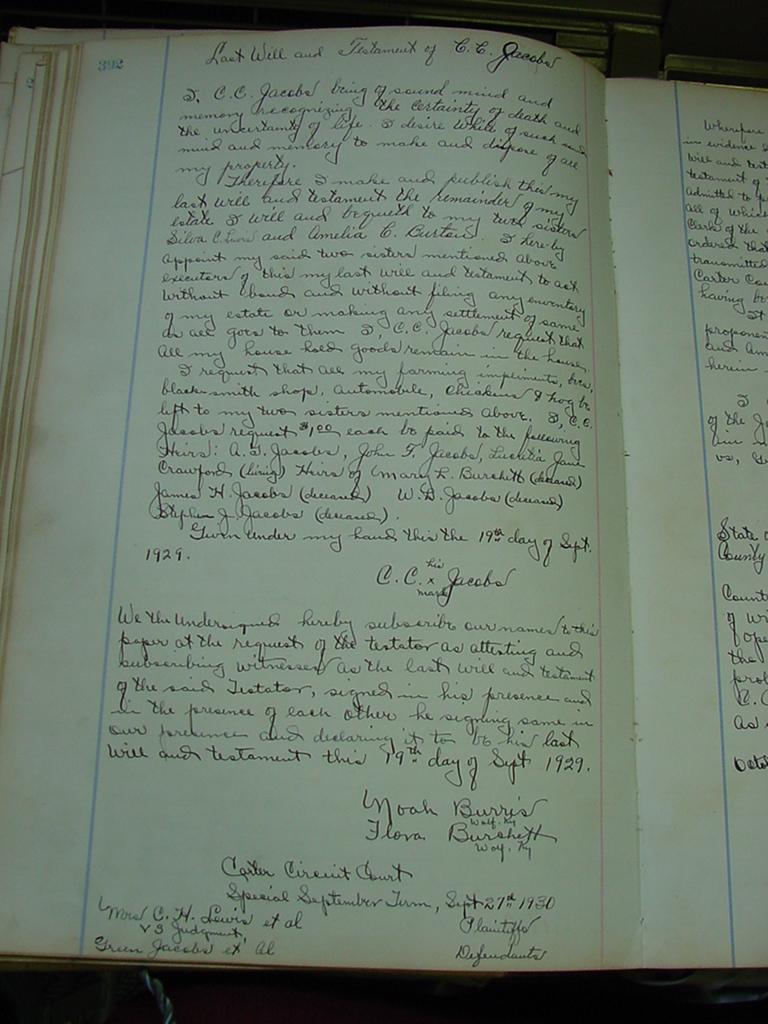 392
Last Will and Testament of C.C. Jacobs
I, C.C. Jacobs being of sound mind and
memory recognizing the certainty of death and
the uncertanty of life. I desire while of such sound
mind and memory to make and dispose of all
my property.
Therefore I make and publish this my
last will and testament the remainder of my
estate I will and bequeth to my two sisters
Silva C. Lewis and Amelia C. Burton. I here-by
appoint my said two sisters mentioned above
executors of this my last will and testament to act
without bond and without filing any enventory
of my estate or making any settlement of same
as all goes to them I, C.C. Jacobs request that
all my house hold goods remain in the house.
I request that all my farming impliments, bees,
blacksmith shop, automobile, chickens & hog be
left to my two sisters mentioned above. I, C.C.
Jacobs request $1.00 each be paid to the following
Heirs: A.J. Jacobs, John F. Jacobs, Lucretia Jane
Crawford (living) Heirs of Mary L. Burchett (deceased)
James H. Jacobs (deceased) W.D. Jacobs (deceased)
Stephen J. Jacobs (deceased).
Given under my hand this the 19th day of Sept.
1929.
his
C. C. x Jacobs
mark
We the undersigned hereby subscribe our names to this
paper at the request of the testator as attesting and
subscribing witnesses as the last will and testament
of the said Testator, signed in his presence and
in the presence of each other he signing same in
our presence and declaring it to be his last
will and testament this 19th day of Sept 1929.
Noah Burris
Wolf. Ky
Flora Burchett
Wolf. Ky
Carter Circuit Court
Special September Term, Sept 27th 1930
Mrs C. H. Lewis et al Plaintiffs
vs Judgment
Green Jacobs et al Defendants
Wherefore
in evidence
will and test
testament of
admitted to
all of which
Clerk of the
ordered that
transmitted
Carter Cou
having be
It
proponen
and Am
herein
I
of the Ja
State o
County
Count
of wi
the
C. C
as
Octob